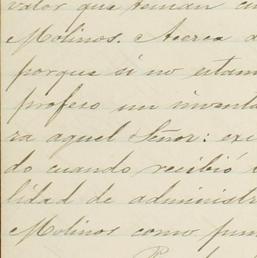 valor que tenían
Molinos. Acerca
porque si no estam
profeso un inventa
ra aquel Señor: exi
do cuando recibió
lidad de administr
Molinos como pun